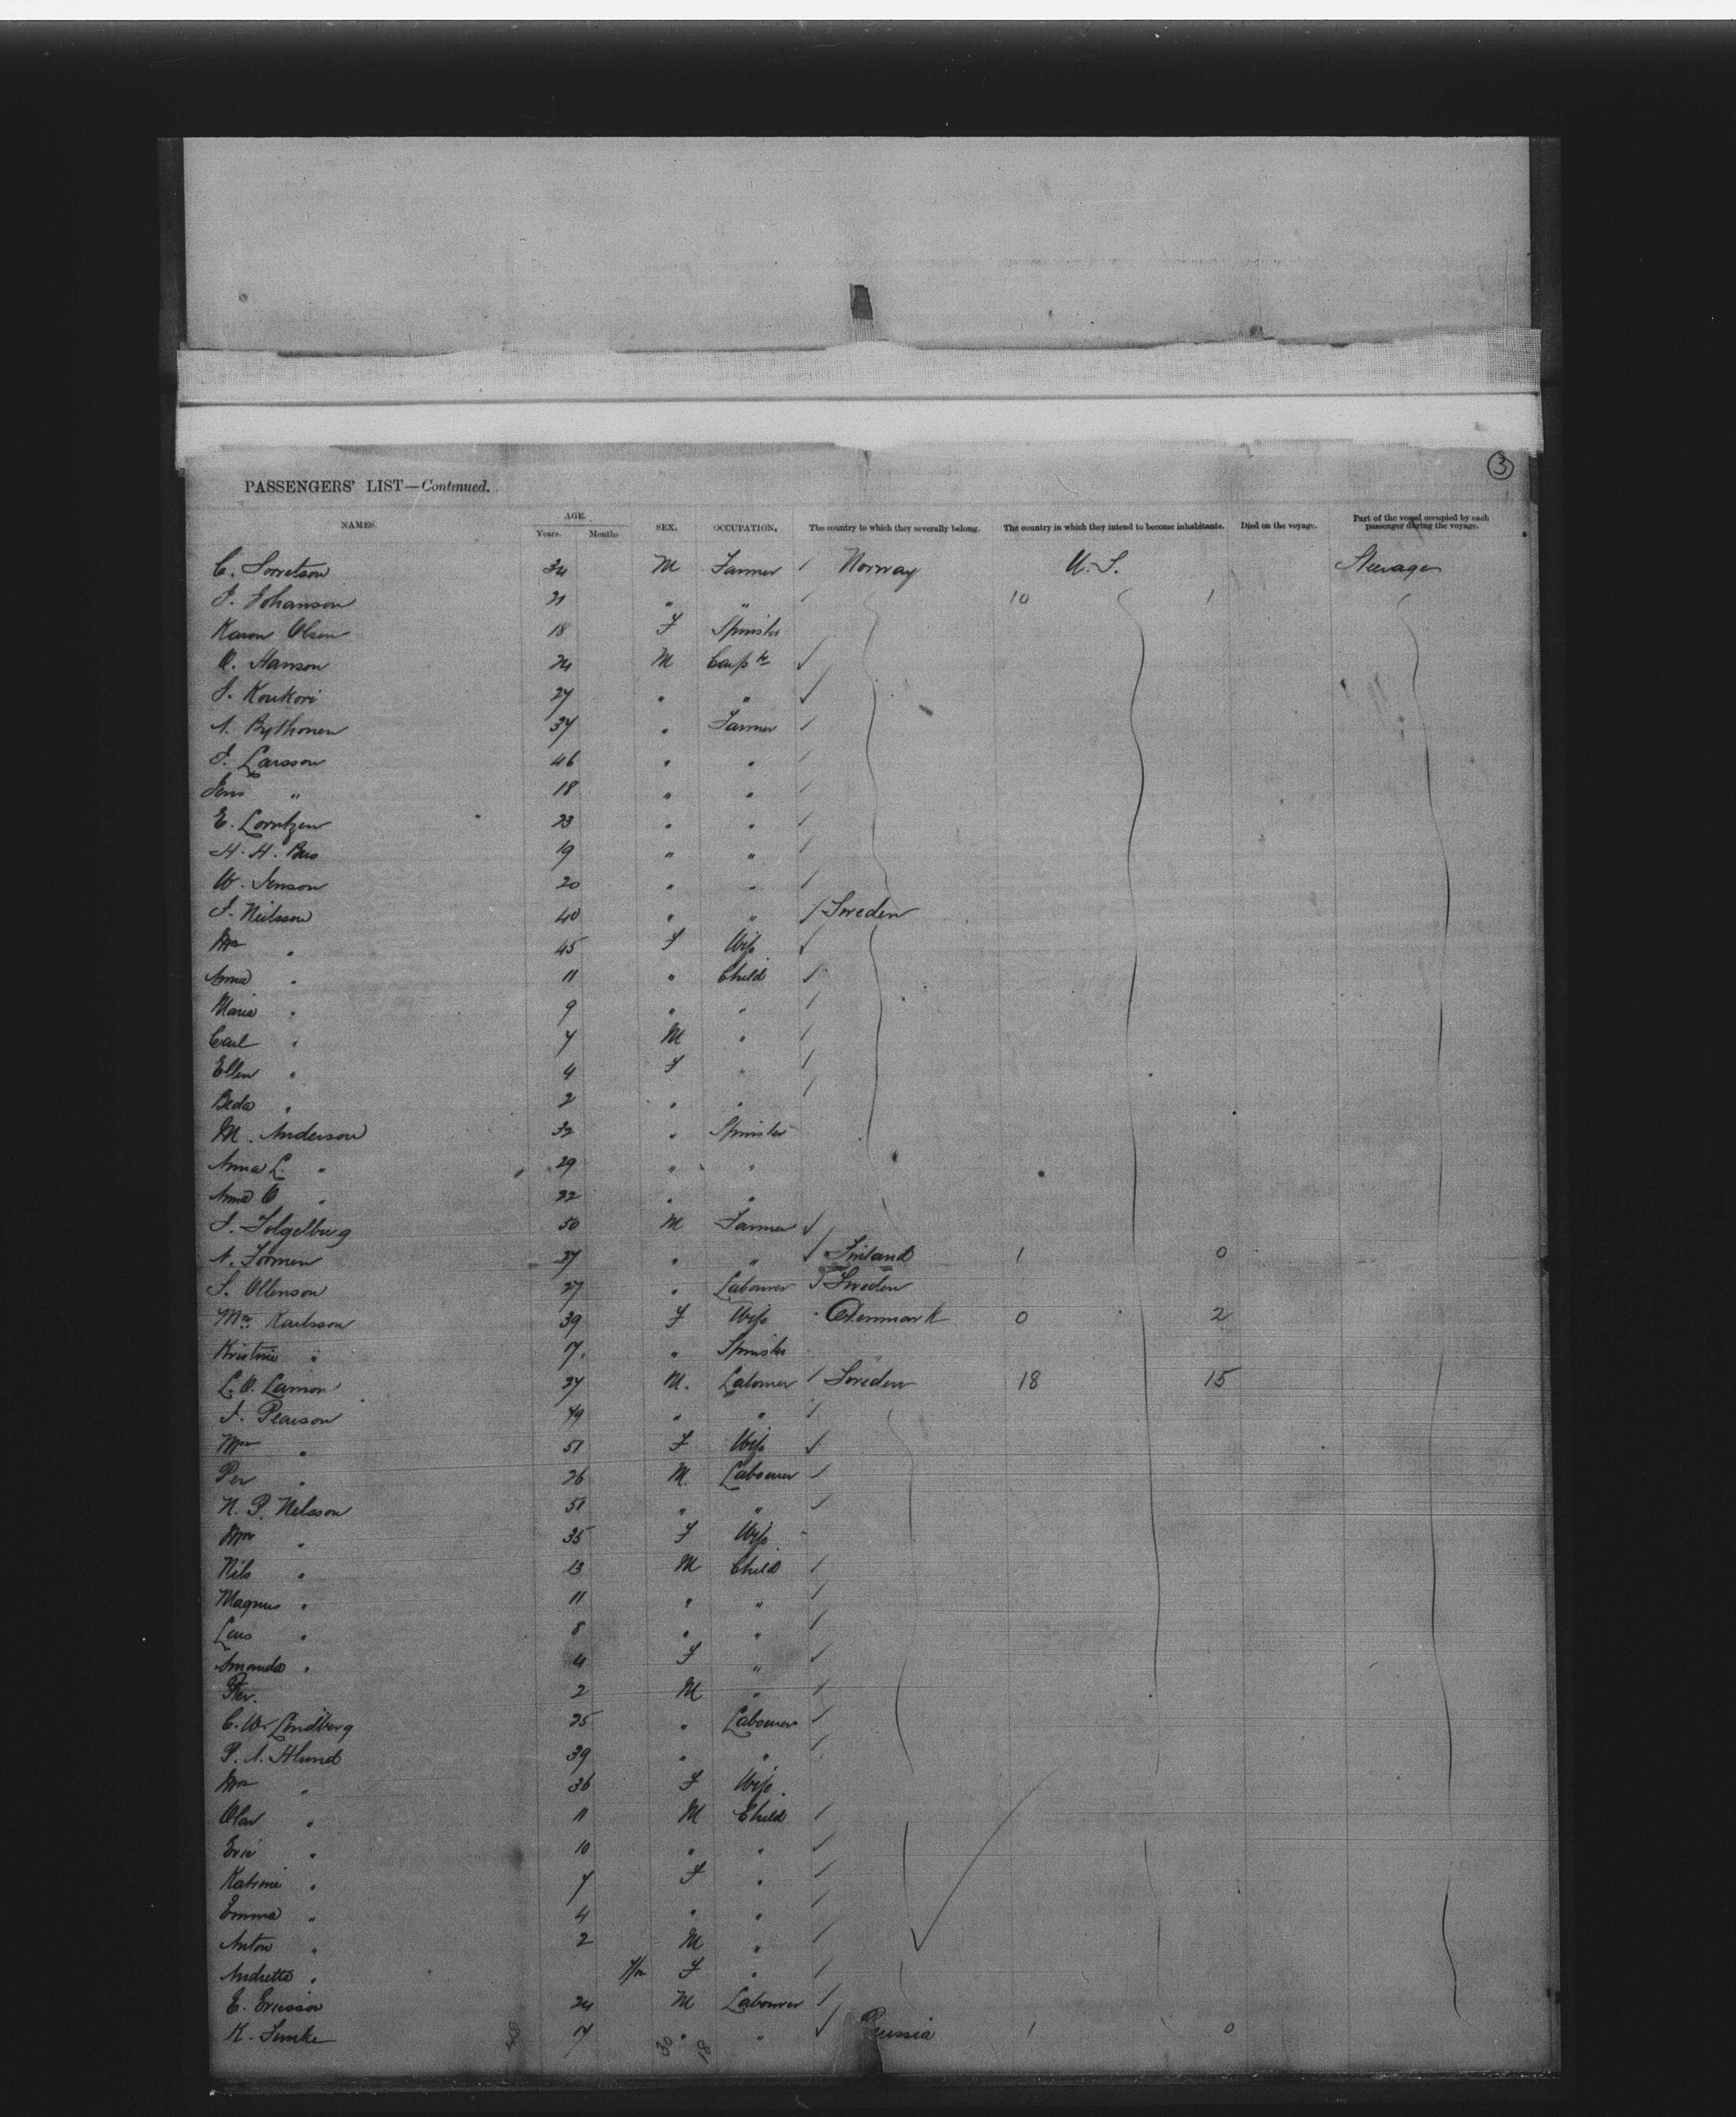 3
PASSENGERS' LIST—Continued.
NAMES. AGE. Years. Months SEX. OCCUPATION. The country to which they severally belong. The country in which they intend to become inhabitants. Died on the voyage. Part of the vessel occupied by each passenger during the voyage.
C. Sorretson 34 M Farmer / Norway U.S. Steerage
J. Johanson 21 " " / 10 1
Karen Olsen 18 F Spinster
O. Hanson 24 M Carptr /
J. Koukori 27 " " /
A. Bythonen 37 " Farmer /
J. Larsson 46 " " /
Jens " 18 " " /
E. Lorntzen 23 " " /
H. H. 19 " " /
W. Jenson 20 " " /
J. Neilsson 40 " " / Sweden
Mrs " 45 F Wife /
Anna " 11 " Child /
Maria " 9 " " /
Carl " 7 M " /
Ellen " 4 F " /
Beda " 2 " " /
M. Anderson 32 " Spinster
Anna L. " 29 " "
Anna O " 22 " "
J. Folgelburg 50 M Farmer /
N. Formen 27 " " / Finland 1 0
S. Ollenson 27 " Labourer / Sweden
Mrs. Karlsson 39 F Wife Denmark 0 2
Kristine " 17. " Spinster
L. O. Larson 27 M. Labourer / Sweden 18 15
J. Pearson 49 " " /
Mrs " 51 F Wife /
Per " 26 M. Labourer /
N. P. Nelsson 51 " " /
Mrs " 35 F Wife
Nils " 13 M Child /
Magnus " 11 " " /
Lars " 8 " " /
Amanda " 4 F " /
Per. 2 M " /
C. W. Lindberg 25 " Labourer /
P. A. Hlund 39 " " /
Mrs " 36 F Wife
Olav " 11 M Child /
Eric " 10 " " /
Katrine " 7 F " /
Emma " 4 " " /
Anton " 2 M " /
Andretta " F " /
E. Ericsson 24 M Labourer /
K. Lemke 17 " " / Russia 1 0
30 18